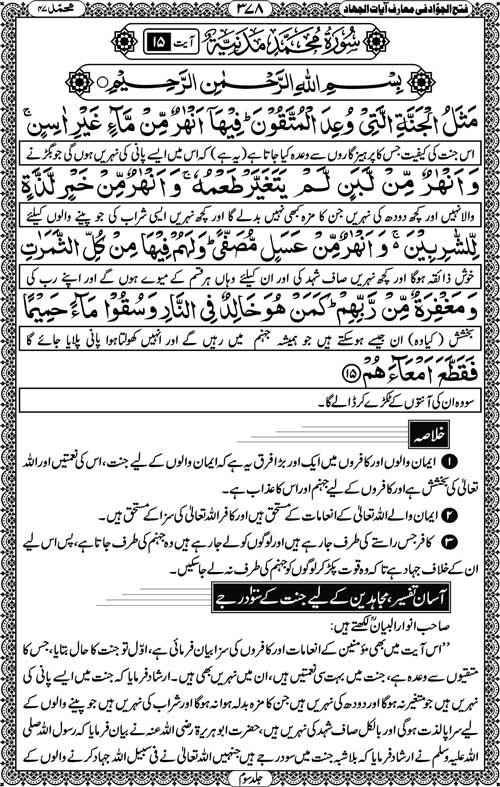 فتح الجوّاد فی معارف آیات الجھاد
۳۷۸
محمّد ۴۷
سُوۡرَةُ مُحَمَّدٍ مَدَنِيَّةٌ آیت ۱۵
بِسۡمِ اللهِ الرَّحۡمٰنِ الرَّحِيۡمِ
مَثَلُ الۡجَنَّةِ الَّتِىۡ وُعِدَ الۡمُتَّقُوۡنَ ؕ فِيۡهَاۤ اَنۡهٰرٌ مِّنۡ مَّآءٍ غَيۡرِ اٰسِنٍ ۚ
اس جنت کی کیفیت جس کا پرہیزگاروں سے وعدہ کیا جاتا ہے (یہ ہے) کہ اس میں ایسے پانی کی نہریں ہوں گی جو بگڑنے
وَاَنۡهٰرٌ مِّنۡ لَّبَنٍ لَّمۡ يَتَغَيَّرۡ طَعۡمُهٗ ۚ وَاَنۡهٰرٌ مِّنۡ خَمۡرٍ لَّذَّةٍ
والا نہیں اور کچھ دودھ کی نہریں جن کا مزہ کبھی نہیں بدلے گا اور کچھ نہریں ایسی شراب کی جو پینے والوں کیلئے
لِّلشّٰرِبِيۡنَ ۚ وَاَنۡهٰرٌ مِّنۡ عَسَلٍ مُّصَفًّى ؕ وَلَهُمۡ فِيۡهَا مِنۡ كُلِّ الثَّمَرٰتِ
خوش ذائقہ ہوگا اور کچھ نہریں صاف شہد کی اور ان کیلئے وہاں ہر قسم کے میوے ہوں گے اور اپنے رب کی
وَمَغۡفِرَةٌ مِّنۡ رَّبِّهِمۡ ؕ كَمَنۡ هُوَ خَالِدٌ فِى النَّارِ وَسُقُوۡا مَآءً حَمِيۡمًا
بخشش (کیا وہ) ان جیسے ہوسکتے ہیں جو ہمیشہ جہنم میں رہیں گے اور انہیں کھولتا ہوا پانی پلایا جائے گا
فَقَطَّعَ اَمۡعَآءَهُمۡ ۱۵
سو وہ ان کی آنتوں کے ٹکڑے کر ڈالے گا۔
خلاصہ
۱ ایمان والوں اور کافروں میں ایک اور بڑا فرق یہ ہے کہ ایمان والوں کے لیے جنت، اس کی نعمتیں اور اللہ
تعالیٰ کی بخشش ہے اور کافروں کے لیے جہنم اور اس کا عذاب ہے۔
۲ ایمان والے اللہ تعالیٰ کے انعامات کے مستحق ہیں اور کافر اللہ تعالیٰ کی سزا کے مستحق ہیں۔
۳ کافر جس راستے کی طرف جارہے ہیں اور لوگوں کو لے جارہے ہیں وہ جہنم کی طرف جاتا ہے، پس اس لیے
ان کے خلاف جہاد ہے تاکہ وہ قوت پکڑ کر لوگوں کو جہنم کی طرف نہ لے جاسکیں۔
آسان تفسیر، مجاہدین کے لیے جنت کے سو درجے
صاحب انوار البیانؒ لکھتے ہیں:
’’اس آیت میں بھی مؤمنین کے انعامات اور کافروں کی سزا بیان فرمائی ہے، اوّل تو جنت کا حال بتایا، جس کا
متقیوں سے وعدہ ہے، جنت میں بہت سی نعمتیں ہیں، ان میں نہریں بھی ہیں۔ ارشاد فرمایا کہ جنت میں ایسے پانی کی
نہریں ہیں جو متغیر نہ ہوگا اور دودھ کی نہریں ہیں جن کا مزہ بدلہ ہوا نہ ہوگا اور شراب کی نہریں ہیں جو پینے والوں کے
لیے سراپا لذت ہوگی اور بالکل صاف شہد کی نہریں ہیں، حضرت ابوہریرۃ رضی اللہ عنہ نے بیان فرمایا کہ رسول اللہ صلی
اللہ علیہ وسلم نے ارشاد فرمایا کہ بلاشبہ جنت میں سو درجے ہیں جنہیں اللہ تعالیٰ نے فی سبیل اللہ جہاد کرنے والوں کے
جلد سوم